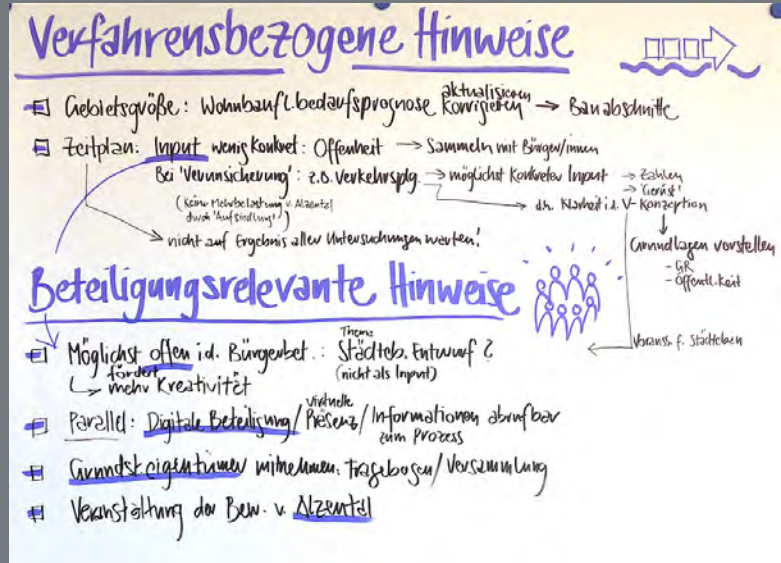 Verfahrensbezogene Hinweise
Gebietsgröße: Wohnbaufl.bedarfsprognose aktualisieren korrigieren → Bauabschnitte
Zeitplan: Input wenig konkret: Offenheit → Sammeln mit Bürger/innen
Bei 'Verunsicherung': z.B. Verkehrsplg. → möglichst konkreter Input → Zahlen
→ 'Gerüst'
(Keine Mehrbelastung v. Alzental
durch 'Aufsiedlung')
→ d.h. Klarheit i.d. V-Konzeption
→ nicht auf Ergebnis aller Untersuchungen warten!
Grundlagen vorstellen
- GR
- Öffentl.keit
Beteiligungsrelevante Hinweise
Vorauss. f. Städteb
Möglichst offen i.d. Bürgerbet.: Thema Städteb. Entwurf?
(nicht als Input)
fördert
↳ mehr Kreativität
Parallel: Digitale Beteiligung/virtuelle Präsenz/Informationen abrufbar
zum Prozess
Grundst.eigentümer mitnehmen: Fragebogen/Versammlung
Veranstaltung der Bew. v. Alzental